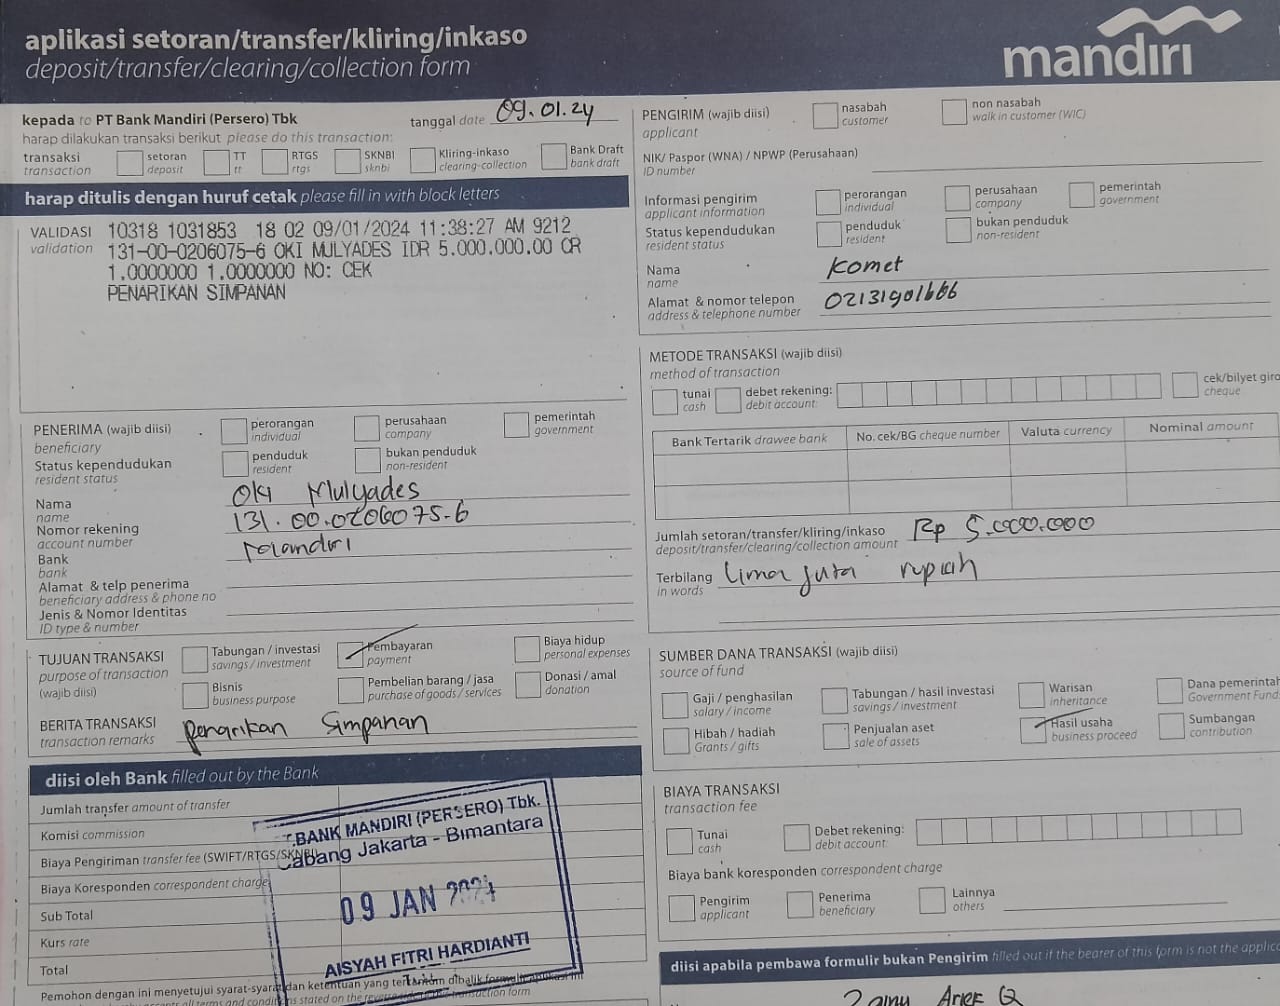 aplikasi setoran/transfer/kliring/inkaso
deposit/transfer/clearing/collection form
mandiri
kepada to PT Bank Mandiri (Persero) Tbk
tanggal date 09.01.24
harap dilakukan transaksi berikut please do this transaction:
transaksi
transaction
setoran
deposit
TT
tt
RTGS
rtgs
SKNBI
sknbi
Kliring-inkaso
clearing-collection
Bank Draft
bank draft
harap ditulis dengan huruf cetak please fill in with block letters
VALIDASI
validation
10318 1031853 18 02 09/01/2024 11:38:27 AM 9212
131-00-0206075-6 OKI MULYADES IDR 5.000.000.00 CR
1.0000000 1.0000000 NO: CEK
PENARIKAN SIMPANAN
PENERIMA (wajib diisi)
beneficiary
perorangan
individual
perusahaan
company
pemerintah
government
Status kependudukan
resident status
penduduk
resident
bukan penduduk
non-resident
Nama
name
Oki Mulyades
Nomor rekening
account number
131.00.0206075-6
Bank
bank
Mandiri
Alamat & telp penerima
beneficiary address & phone no
Jenis & Nomor Identitas
ID type & number
TUJUAN TRANSAKSI
purpose of transaction
(wajib diisi)
Tabungan / investasi
savings / investment
Pembayaran
payment
Biaya hidup
personal expenses
Bisnis
business purpose
Pembelian barang / jasa
purchase of goods / services
Donasi / amal
donation
BERITA TRANSAKSI
transaction remarks
Penarikan Simpanan
diisi oleh Bank filled out by the Bank
Jumlah transfer amount of transfer
Komisi commission
Biaya Pengiriman transfer fee (SWIFT/RTGS/SKNBI)
Biaya Koresponden correspondent charge
Sub Total
Kurs rate
Total
BANK MANDIRI (PERSERO) Tbk.
Cabang Jakarta - Bimantara
09 JAN 2024
AISYAH FITRI HARDIANTI
Pemohon dengan ini menyetujui syarat-syarat dan ketentuan yang tercantum dibalik formulir
PENGIRIM (wajib diisi)
applicant
nasabah
customer
non nasabah
walk in customer (WIC)
NIK/ Paspor (WNA) / NPWP (Perusahaan)
ID number
Informasi pengirim
applicant information
perorangan
individual
perusahaan
company
pemerintah
government
Status kependudukan
resident status
penduduk
resident
bukan penduduk
non-resident
Nama
name
Komet
Alamat & nomor telepon
address & telephone number
02131901666
METODE TRANSAKSI (wajib diisi)
method of transaction
tunai
cash
debet rekening:
debit account:
cek/bilyet giro
cheque
Bank Tertarik drawee bank
No. cek/BG cheque number
Valuta currency
Nominal amount
Jumlah setoran/transfer/kliring/inkaso
deposit/transfer/clearing/collection amount
Rp 5.000.000
Terbilang
in words
Lima juta rupiah
SUMBER DANA TRANSAKSI (wajib diisi)
source of fund
Gaji / penghasilan
salary / income
Tabungan / hasil investasi
savings / investment
Warisan
inheritance
Dana pemerintah
Government Fund
Hibah / hadiah
Grants / gifts
Penjualan aset
sale of assets
Hasil usaha
business proceed
Sumbangan
contribution
BIAYA TRANSAKSI
transaction fee
Tunai
cash
Debet rekening:
debit account:
Biaya bank koresponden correspondent charge
Pengirim
applicant
Penerima
beneficiary
Lainnya
others
diisi apabila pembawa formulir bukan Pengirim filled out if the bearer of this form is not the applic
Arief Q